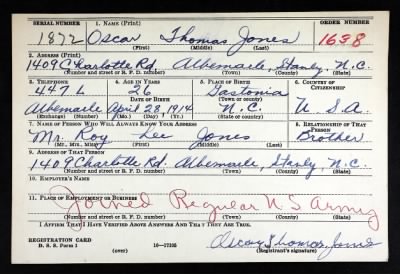 SERIAL NUMBER 1. NAME (Print) ORDER NUMBER
1872 Oscar Thomas Jones 1638
(First) (Middle) (Last)
2. ADDRESS (Print)
1409 Charlotte Rd. Albemarle, Stanly, N.C.
(Number and street or R. F. D. number) (Town) (County) (State)
3. TELEPHONE 4. AGE IN YEARS 5. PLACE OF BIRTH 6. COUNTRY OF CITIZENSHIP
447 L 26 Gastonia
DATE OF BIRTH (Town or county)
Albemarle April 28, 1914 N.C. U.S.A.
(Exchange) (Number) (Mo.) (Day) (Yr.) (State or country)
7. NAME OF PERSON WHO WILL ALWAYS KNOW YOUR ADDRESS 8. RELATIONSHIP OF THAT PERSON
Mr. Roy Lee Jones Brother
(Mr., Mrs., Miss) (First) (Middle) (Last)
9. ADDRESS OF THAT PERSON
1409 Charlotte Rd. Albemarle, Stanly, N.C.
(Number and street or R. F. D. number) (Town) (County) (State)
10. EMPLOYER'S NAME
Joined Regular U S Army
11. PLACE OF EMPLOYMENT OR BUSINESS
(Number and street or R. F. D. number) (Town) (County) (State)
I AFFIRM THAT I HAVE VERIFIED ABOVE ANSWERS AND THAT THEY ARE TRUE.
REGISTRATION CARD
D. S. S. Form 1 16—17105 Oscar Thomas Jones
(over) (Registrant's signature)